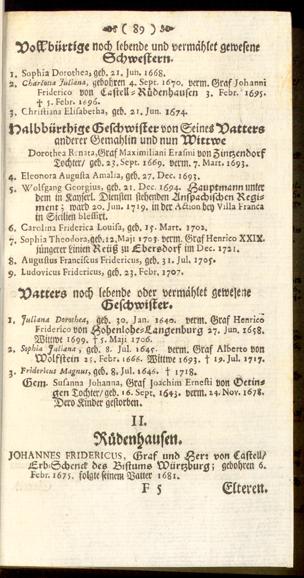 ( 89 )
Vollbürtige noch lebende und vermählet gewesene
Schwestern.
1. Sophia Dorothea, geb. 21. Jun. 1668.
2. Charlotta Juliana, gebohren 4. Sept. 1670. verm. Graf Johanni
Friderico von Castell-Rüdenhausen 3. Febr. 1695.
† 5. Febr. 1696.
3. Christiana Elisabetha, geb. 21. Jun. 1674.
Halbbürthige Geschwister von Seines Vatters
anderer Gemahlin und nun Wittwe
Dorothea Renata, Graf Maximiliani Erasmi von Zintzendorf
Tochter/ geb. 23. Sept. 1669. verm. 7. Mart. 1693.
4. Eleonora Augusta Amalia, geb. 27. Dec. 1693.
5. Wolfgang Georgius, geb. 21. Dec. 1694. Hauptmann unter
dem in Kayserl. Diensten stehenden Anspachischen Regi-
ment; ward 20. Jun. 1719. in der Action bey Villa Franca
in Sicilien blessirt.
6. Carolina Friderica Louisa, geb. 15. Mart. 1702.
7. Sophia Theodora, geb. 12. Maji 1703. verm. Graf Henrico XXIX.
jüngerer Linien Reuß zu Ebersdorf im Dec. 1721.
8. Augustus Franciscus Fridericus, geb. 31. Jul. 1705.
9. Ludovicus Fridericus, geb. 23. Febr. 1707.
Vatters noch lebende oder vermählet gewesene
Geschwister.
1. Juliana Dorothea, geb. 30. Jan. 1640. verm. Graf Henrico
Friderico von Hohenlohe-Langenburg 27. Jun. 1658.
Wittwe 1699. † 5. Maji 1706.
2. Sophia Juliana, geb. 8. Jul. 1645. verm. Graf Alberto von
Wolfstein 25. Febr. 1666. Wittwe 1693. † 19. Jul. 1717.
3. Fridericus Magnus, geb. 8. Jul. 1646. † 1718.
Gem. Susanna Johanna, Graf Joachim Ernesti von Oetin-
gen Tochter/ geb. 16. Sept. 1643. verm. 24. Nov. 1678.
Dero Kinder gestorben.
II.
Rüdenhausen.
JOHANNES FRIDERICUS, Graf und Herr von Castell/
Erb-Schenck des Bistums Würtzburg; gebohren 6.
Febr. 1675. folgte seinem Vatter 1681.
F 5 Elteren.